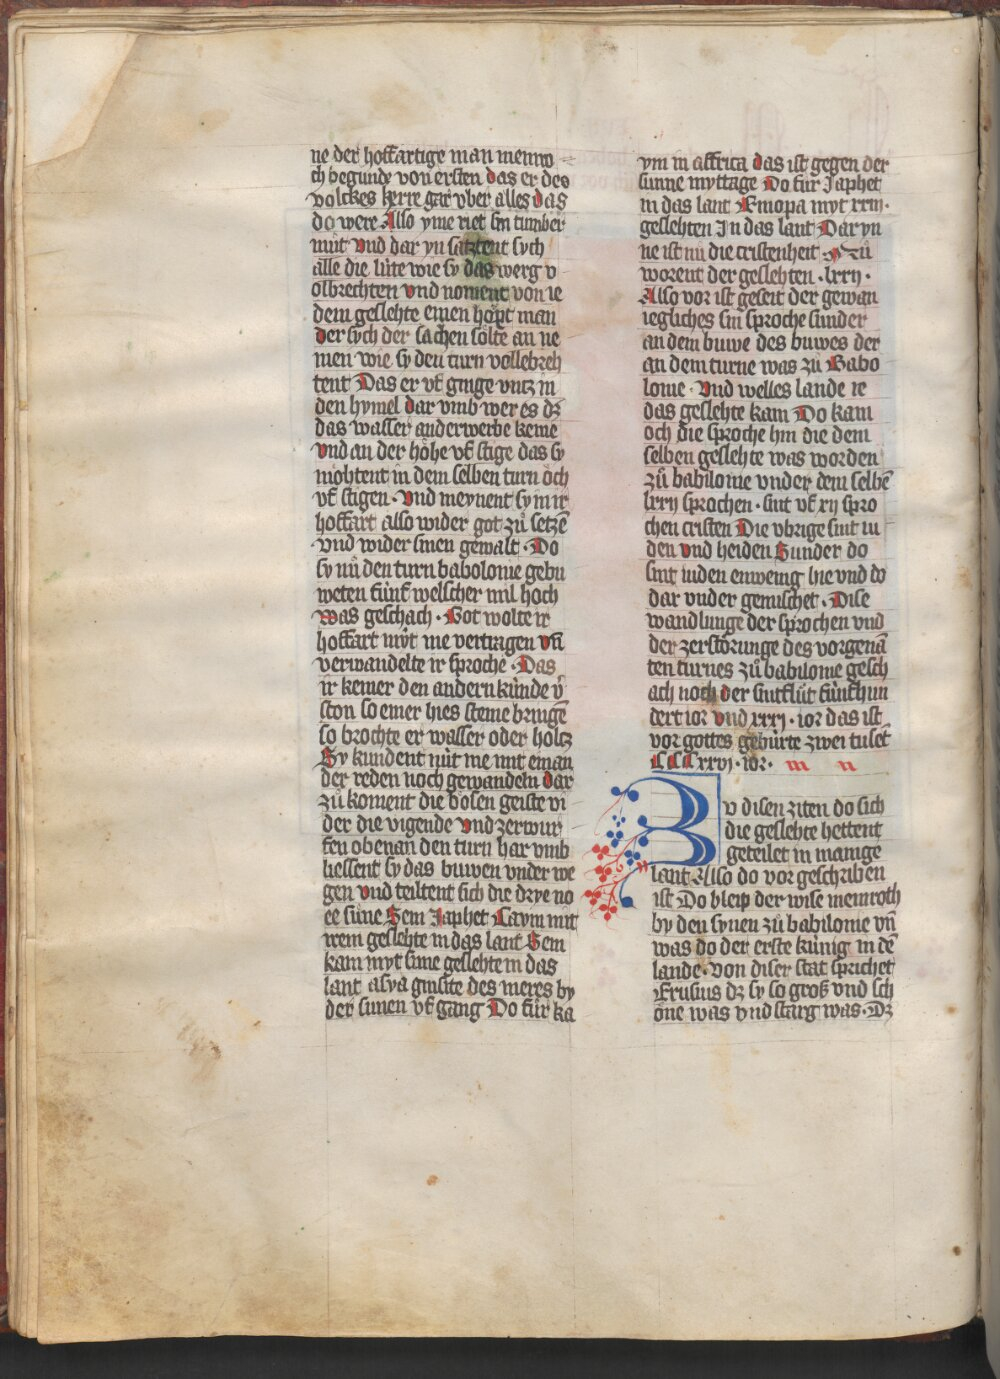 ne der hoffartige man menro
ch begunde von ersten das er des
volckes herre gar vber alles das
do were Also yme riet sin tumber
můt Vnd dar yn satztent sych
alle die lúte wie sy das werg v
olbrechten vnd noment von ie
dem geslehte einen hopt man
der sych der sachen solte an ne
men wie sy den turn vollebreh
tent Das er vf ginge vntz in
den hymel dar vmb wer es dz
das wasser anderwerbe keme
vnd an der höhe vf stige das sy
möhtent in dem selben turn och
vf stigen · Vnd meynent sy in ir
hoffart also wider got zů setzē
vnd wider sinen gewalt · Do
sy nů den turn babolonie gebu
weten fúnf welscher mil hoch
was geschach · Got wolte ir
hoffart nyt me vertragen vñ
verwandelte ir sproche · Das
ir keiner den andern kúnde v̄
ston so einer hies steine bringē
so brochte er wasser oder holtz
Sy kundent nút me mit einan
der reden noch gewandeln dar
zů koment die bösen geiste vi
der die vigende vnd zerwur
fen obenan den turn har vmb
liessent sy das buwen vnder we
gen vnd teiltent sich die drye no
ee súne Sem Japhet Caym mit
irem geslehte in das lant Sem
kam myt sime geslehte in das
lant asya ginsite des meres by
der sunen vf gang Do fůr ka
ym in affrica das ist gegen der
sunne myttage Do fůr Japhet
in das lant Eiropa myt xxiij·
geslehten In das lant Dar yn
ne ist nů die cristenheit zů
worent der geslehten · lxxij ·
Also vor ist geseit der gewan
iegliches sin sproche sunder
an dem buwe des buwes der
an dem turne was zů Babo
lonie · Vnd welles lande ie
das geslehte kam Do kam
och die sproche hin die dem
selben geslehte was worden
zů babilonie vnder dem selbē
lxxij sprochen · sint vf xij spro
chen cristen Die vbrige sint iu
den vnd heiden Sunder do
sint iuden enwenig hie vnd do
dar vnder gemischet · Dise
wandlunge der sprochen vnd
der zerstörunge des vorgenā
ten turnes zů babilonie gesch
ach noch der sintflůt fúnfhun
dert ior vnd xxxj · ior das ist
vor gottes gebúrte zwei tusēt
CCC xxvj · ior · m n
Bv disen ziten do sich
die geslehte hettent
geteilet in manige
lant Also do vor geschriben
ist Do bleip der wise memroth
by den synen zů babilonie vñ
was do der erste kúnig in dē
lande · von diser stat sprichet
Erusius dz sy so groß vnd sch
öne was vnd starg was · Dz